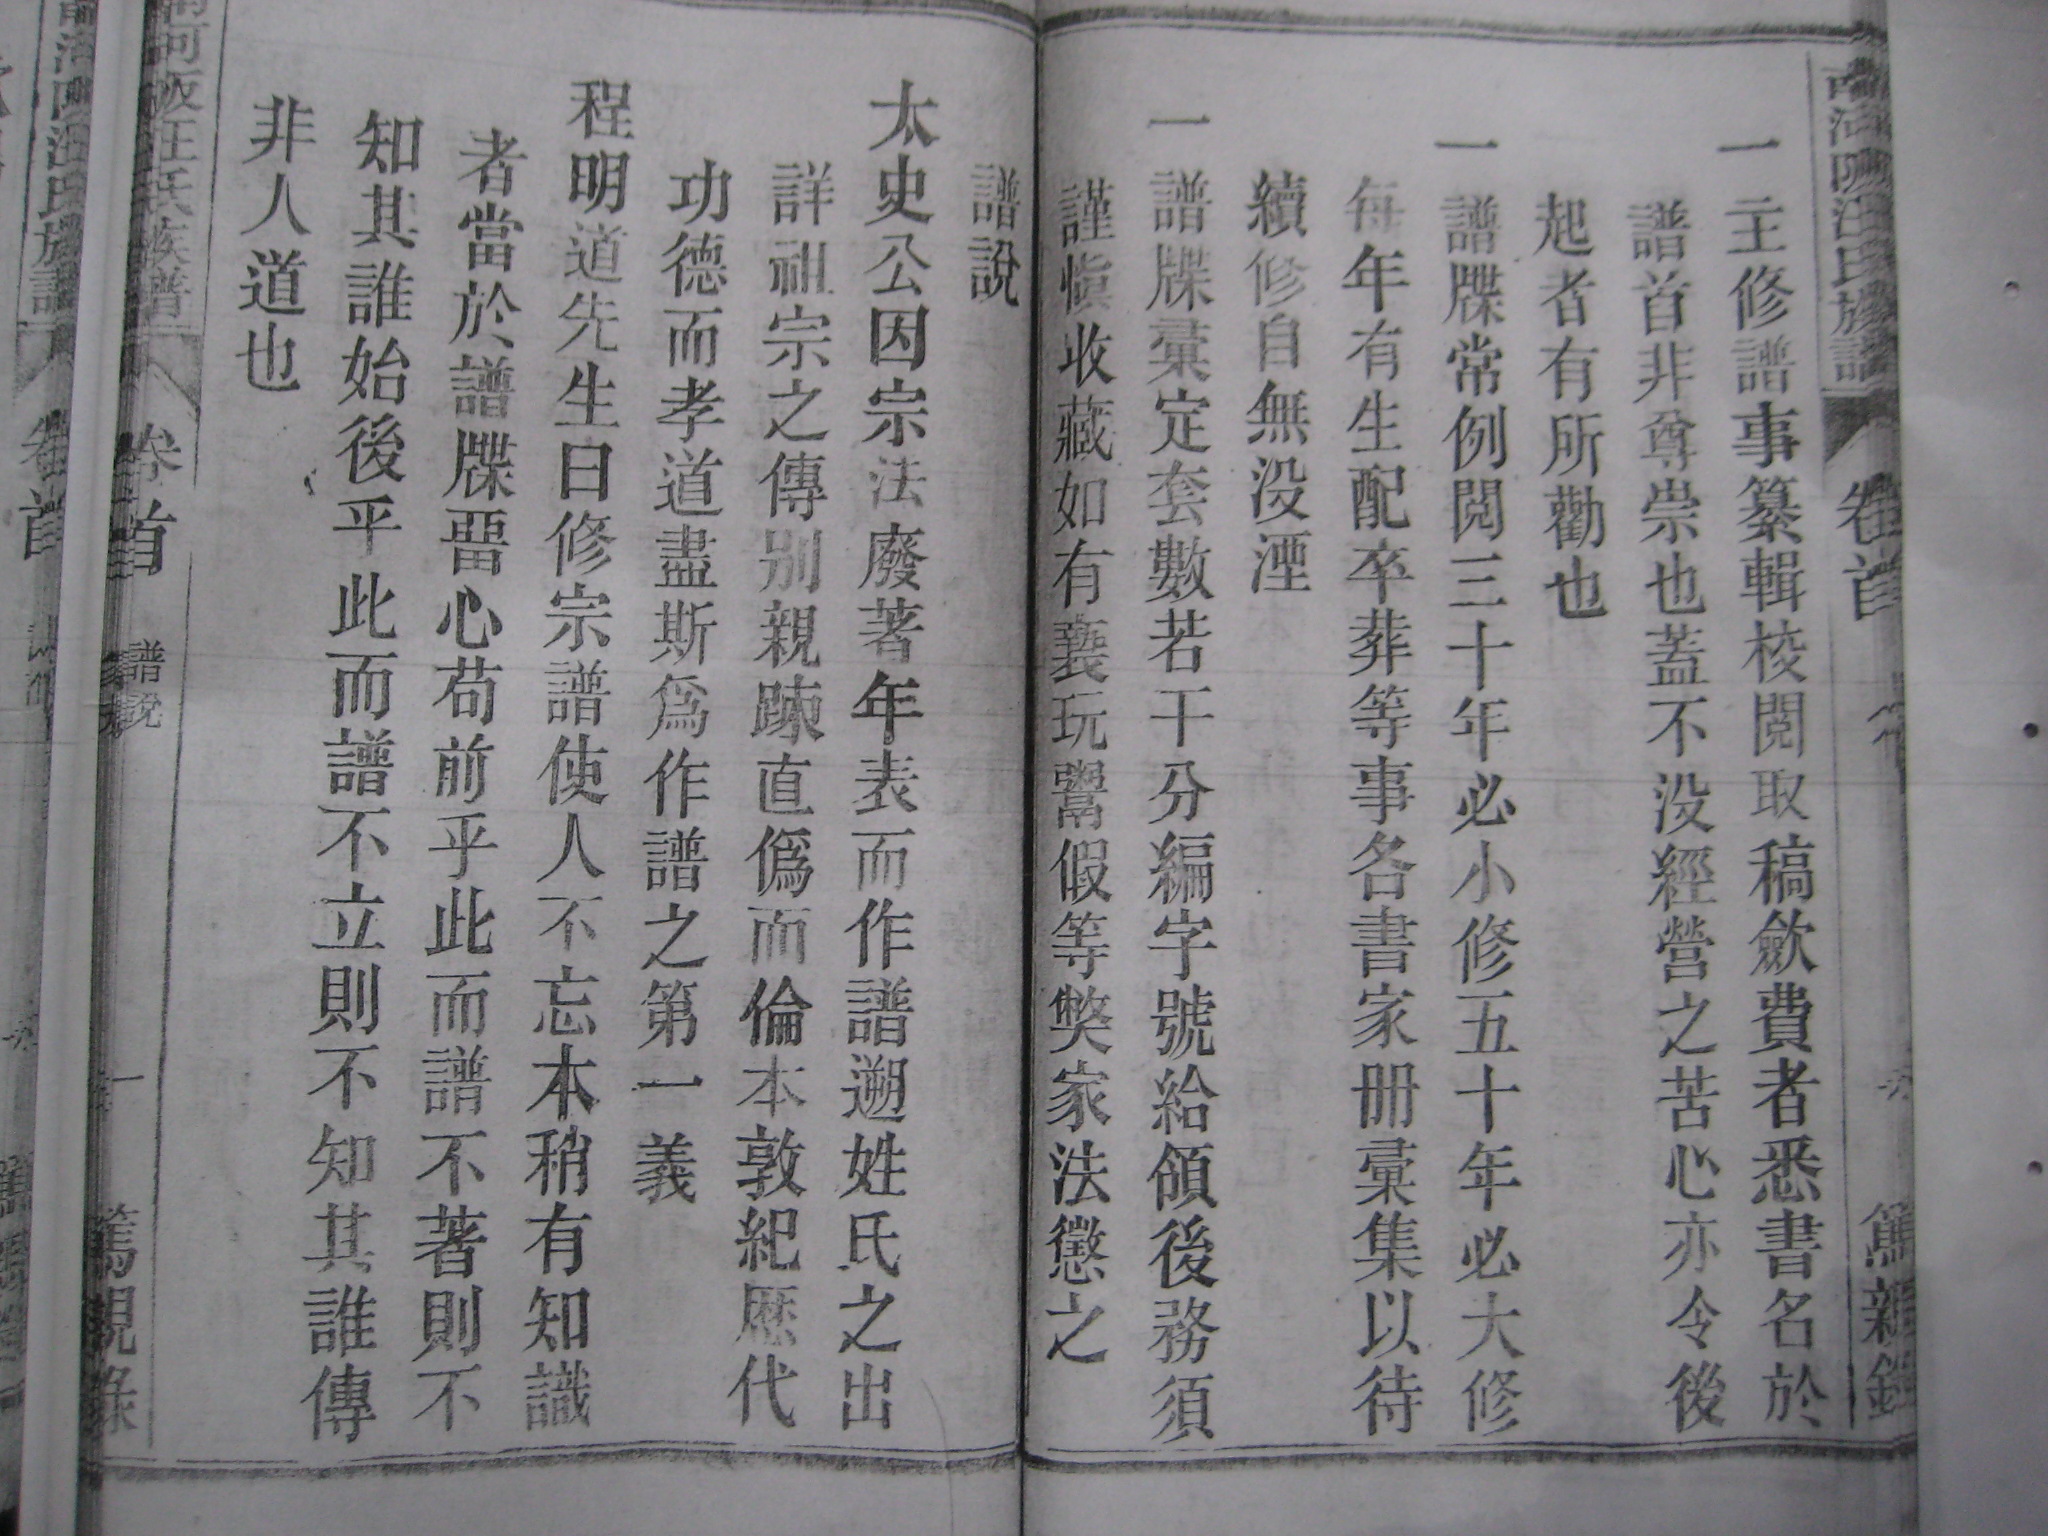 汪氏族譜
卷首
一主修譜事纂輯校閱取稿歛費者悉書名於
譜首非尊崇也蓋不没經營之苦心亦令後
起者有所勸也
一譜牒常例閱三十年必小修五十年必大修
每年有生配卒葬等事各書家册彙集以待
續修自無没湮
一譜牒彙定套數若干分編字號給領後務須
謹慎收藏如有褻玩鬻假等獘家法懲之
譜說
太史公因宗法廢著年表而作譜遡姓氏之出
詳祖宗之傳別親踈直僞而倫本敦紀歷代
功德而孝道盡斯爲作譜之第一義
程明道先生曰修宗譜使人不忘本稍有知識
者當於譜牒畱心苟前乎此而譜不著則不
知其誰始後乎此而譜不立則不知其誰傳
非人道也
汪氏族譜
卷首
譜說
一
篤親錄